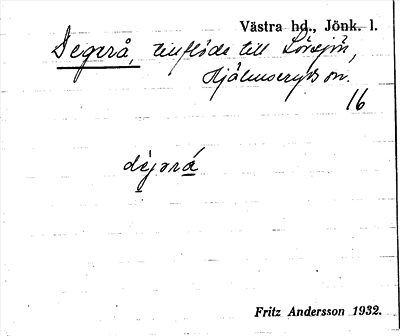 Västra hd., Jönk. l.
Degerå, tillflöde till Lörsjön,
Hjälmseryds sn.
16
dèjará
Fritz Andersson 1932.